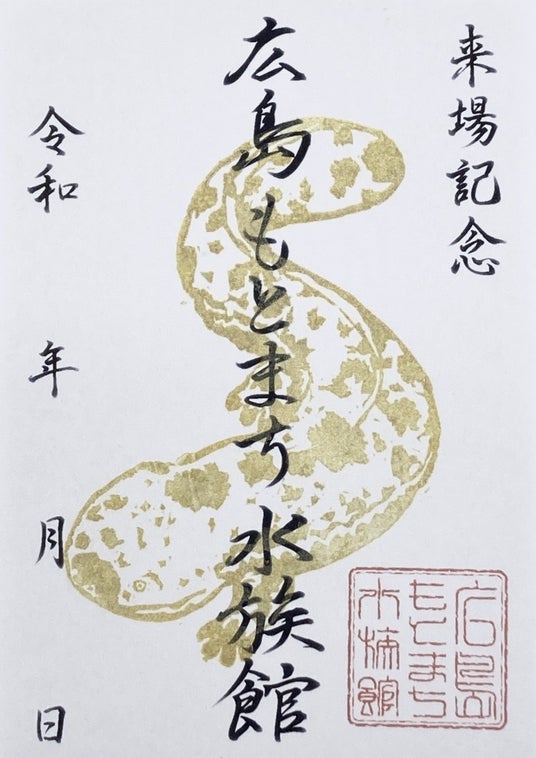 来場記念
広島もとまち水族館
令和 年 月 日
広島
もとまち
水族館